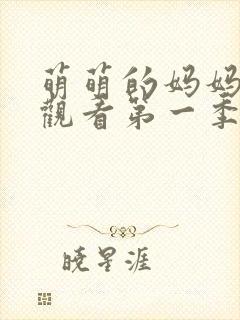 萌萌的妈妈
觀看第一季
晓星涯